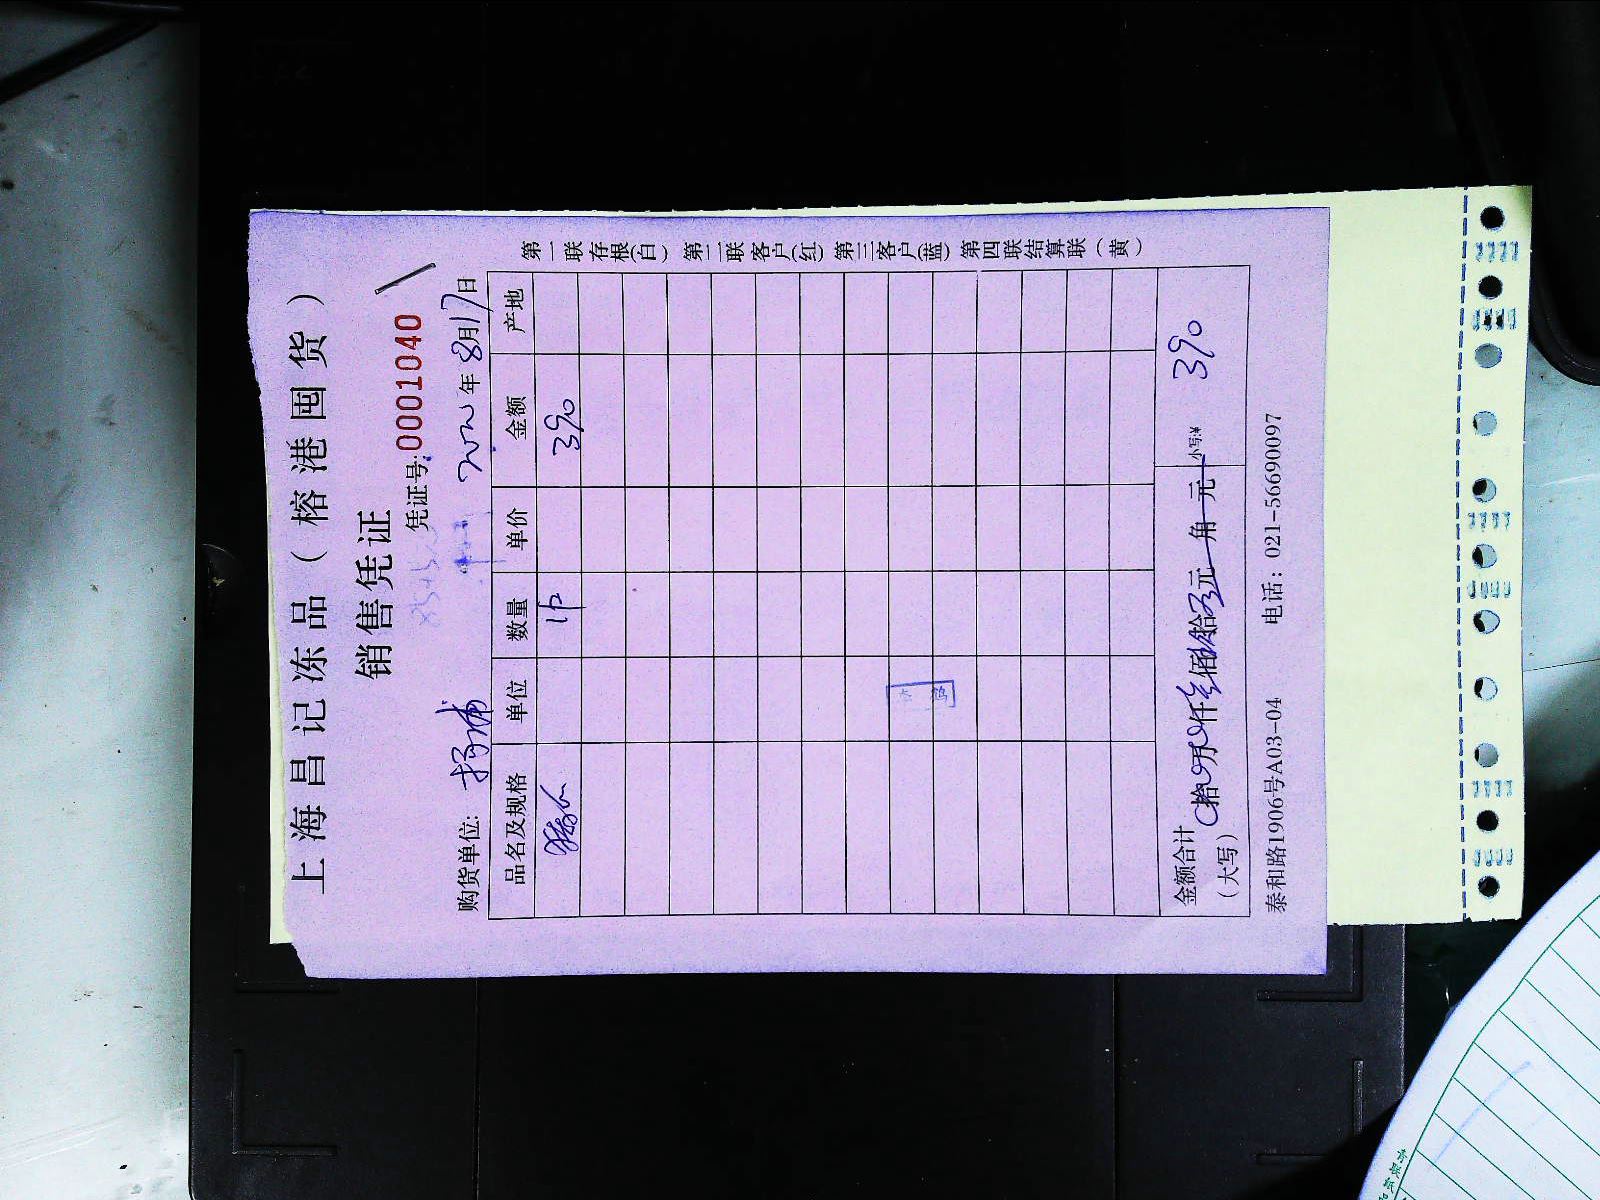 上海昌记冻品（榕港囤货）
销售凭证
凭证号:0001040
购货单位: 杨浦 年8月17日
品名及规格 单位 数量 单价 金额 产地
390
金额合计（大写） 拾 万 仟 佰 拾 元 角 元 小写:¥ 390
泰和路1906号A03-04 电话: 021-56690097
第一联存根(白) 第二联客户(红) 第三客户(蓝) 第四联结算联（黄）